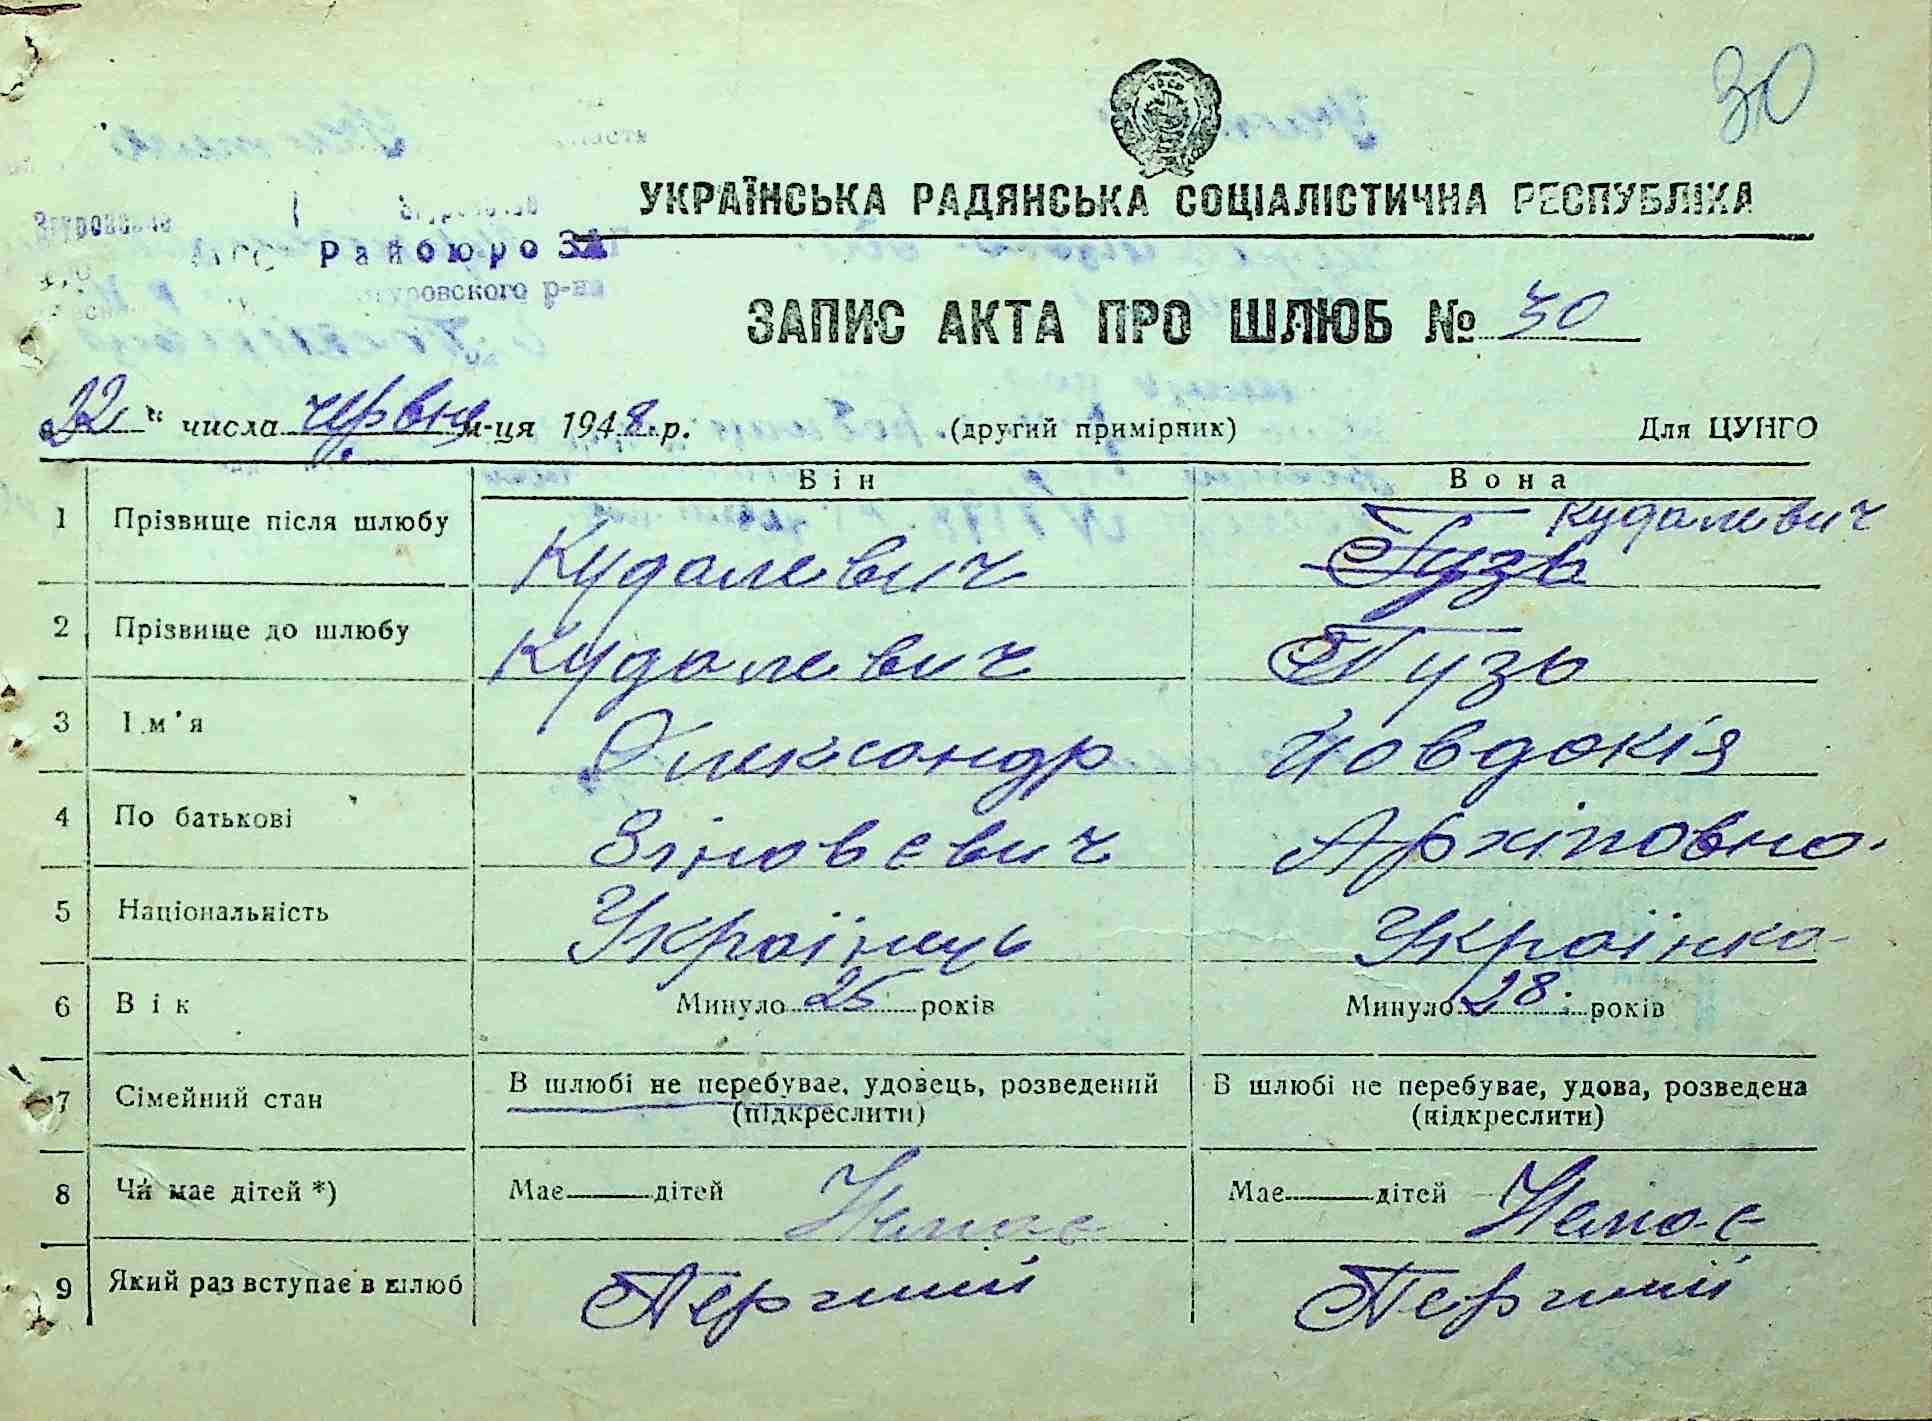 30
УКРАЇНСЬКА РАДЯНСЬКА СОЦІАЛІСТИЧНА РЕСПУБЛІКА
Згуровское
Райбюро ЗА
Згуровского р-на
ЗАПИС АКТА ПРО ШЛЮБ № 30
"22" числа червня м-ця 1948 р. (другий примірник) Для ЦУНГО
Він Вона
1 Прізвище після шлюбу Кудалевич Гузь Кудалевич
2 Прізвище до шлюбу Кудалевич Гузь
3 Ім'я Олександр Йовдокія
4 По батькові Зіновєвич Архіповна.
5 Національність Українець Українка
6 Вік Минуло 25 років Минуло 28. років
7 Сімейний стан В шлюбі не перебуває, удовець, розведений В шлюбі не перебуває, удова, розведена
(підкреслити) (підкреслити)
8 Чи має дітей *) Має дітей Немає Має дітей Немає
9 Який раз вступає в шлюб Перший Перший